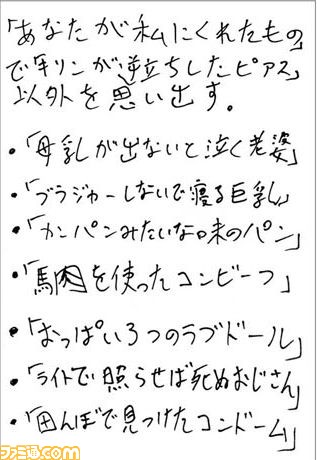 「あなたが私にくれたもの
で「キリンが逆立ちしたピアス」
以外を思い出す。
・「母乳が出ないと泣く老婆」
・「ブラジャーしないで寝る巨乳」
・「カンパンみたいな味のパン」
・「馬肉を使ったコンビーフ」
・「おっぱい3つのラブドール」
・「ライトで照らせば死ぬおじさん」
・「田んぼで見つけたコンドーム」
ファミ通.com